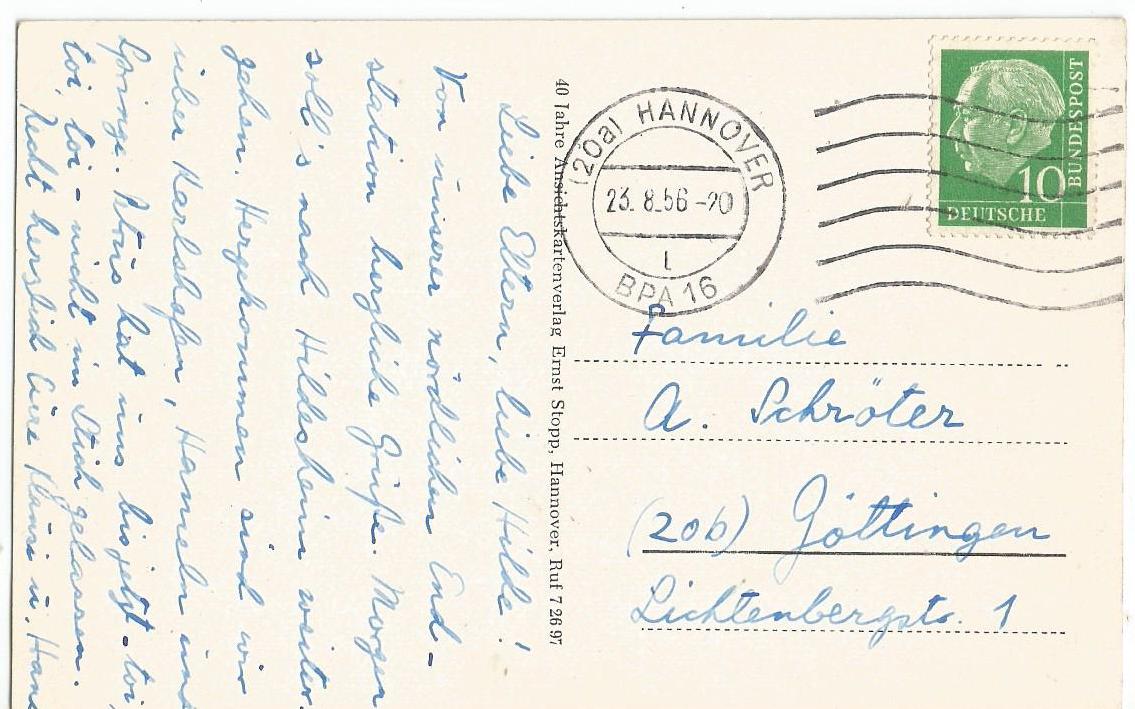 Liebe Eltern, liebe Hilde!
Von unserer nördlichen End-
station herzliche Grüße. Morgen
soll's nach Hildesheim weiter
gehen. Hergekommen sind wir
über Karlshafen, Hameln und
Springe. hat uns bis jetzt - toi,
toi, toi - nicht im Stich gelassen.
Recht herzlich Eure u. Hans
40 Jahre Ansichtskartenverlag Ernst Stopp, Hannover, Ruf 7 26 97
(20a) HANNOVER
23.8.56-20
BPA 16
10
DEUTSCHE
BUNDESPOST
Familie
A. Schröter
(20b) Göttingen
Lichtenbergstr. 1